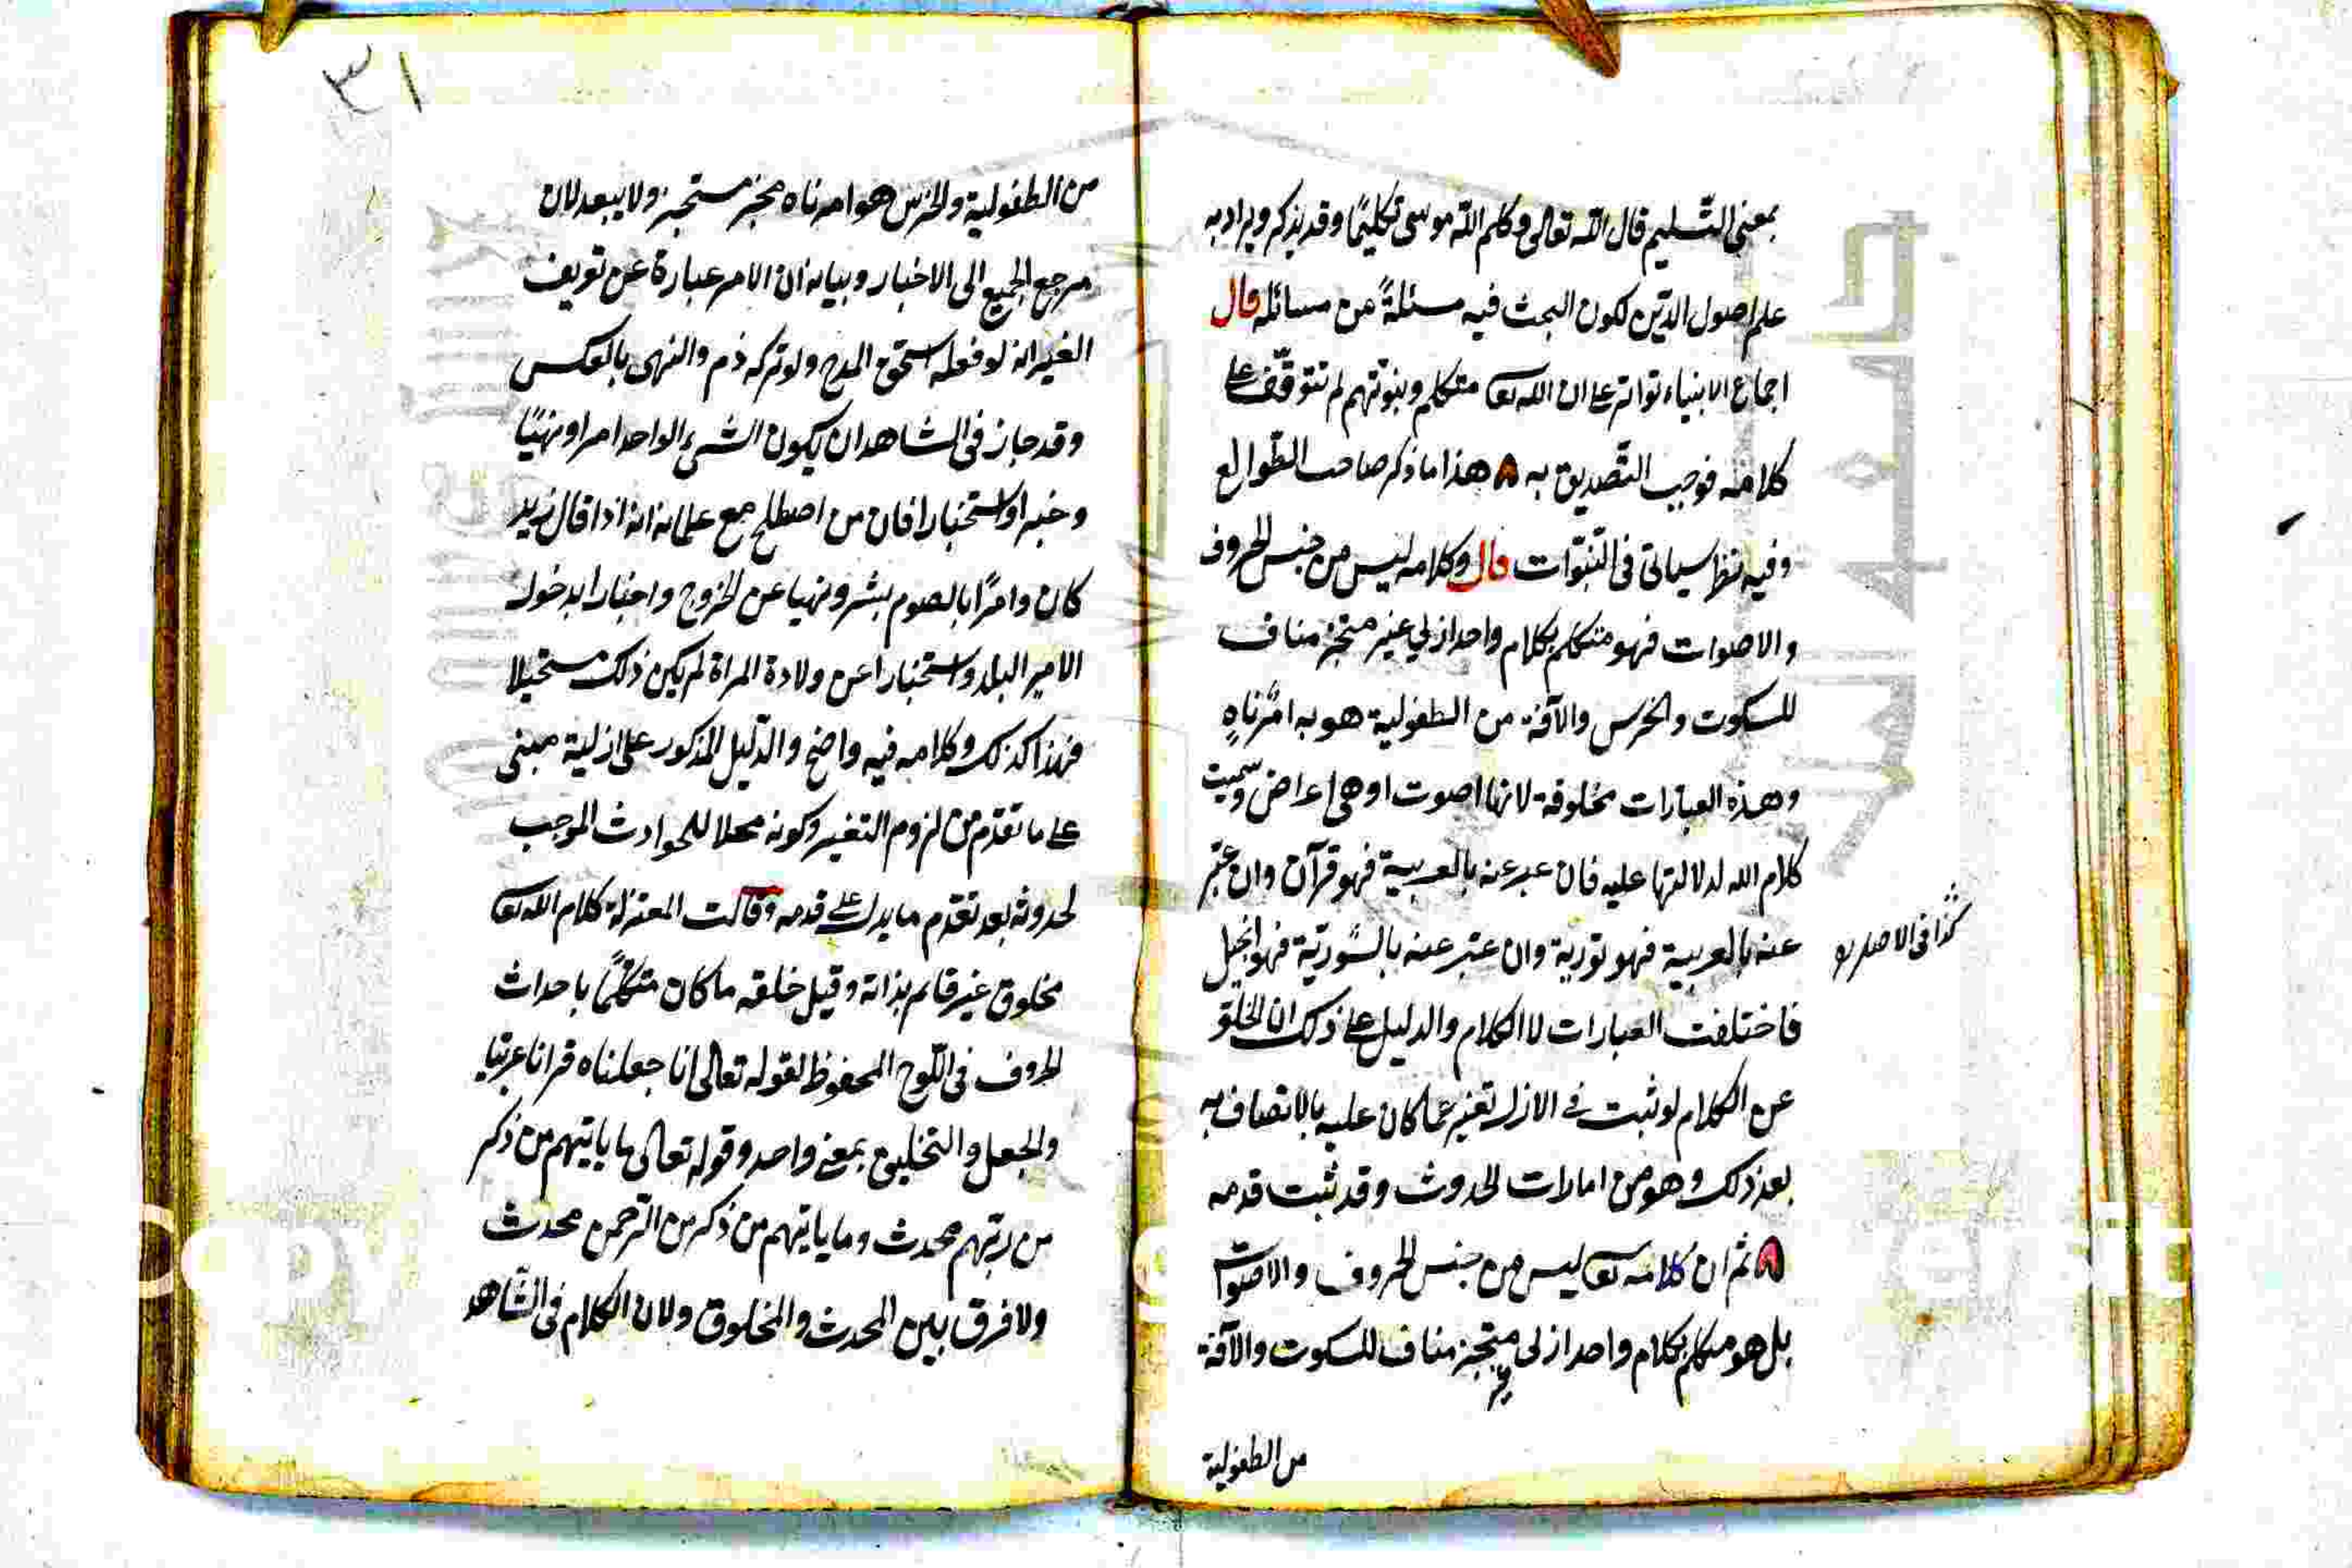 بمعنى التّسليم قال الله تعالى وكلم الله موسى تكليمًا وقد يذكر ويراد به
علم اصول الدّين لكون البحث فيه مسئلةً من مسائله قال
اجماع الانبياء تواتر على ان الله تعا متكلم وبنوتهم لم تتوقّف على
كلامه فوجب التّصديق به ۸ هذا ما ذكر صاحب الطّوالع
وفيه نظر سياتى فى النّبوّات قال وكلامه ليس من جنس الحروف
والاصوات فهو متكلم بكلام واحد ازلي غير متجز مناف
للسكوت والخرس والآفة من الطفولية هو به امرناهٍ
وهذه العبارات مخلوقة لانها اصوت او هى اعراض وسميت
كلام الله لدلالتها عليه فان عبر عنه بالعربية فهو قرآن وان عبّر
عنه بالعربية فهو تورية وان عبّر عنه بالسّوريّة فهو انجيل
كذا فى الاصل
فاختلفت العبارات لا الكلام والدليل على ذلك ان الخلو
عن الكلام لو ثبت فى الازل تغير عما كان عليه بالاتصاف به
بعد ذلك وهو من امارات الحدوث وقد ثبت قدمه
۸ ثم ان كلامه تعا ليس من جنس الحروف والاصوات
بل هو متكلم بكلام واحد ازلى غير متجز مناف للسكوت والآفة
من الطفولية
۳۱
من الطفولية والخرس هو امر ناه مخبر مستخبر ولا يبعد لان
مرجع الجميع الى الاخبار وبيانه ان الامر عبارة عن تعريف
الغير انه لو فعله استحق المدح ولو تركه ذم والنهى بالعكس
وقد جاز فى الشاهد ان يكون الشىء الواحد امرا ونهيًا
وخبرا واستخبارا فان من اصطلح مع غلمانه انه اذا قال زيد
كان وامرًا بالصوم بشر ونهيا عن الخروج واخبارا بدخول
الامير البلد واستخبارا عن ولادة المراة لم يكن ذلك مستحيلا
فهذا كذلك وكلامه فيه واضح والدّليل المذكور على ازلية مبنى
على ما تقدّم من لزوم التغير وكونه محلا للحوادث الموجب
لحدوثه بعد تقدّم ما يدل على قدمه وقالت المعتزلة كلام الله تعا
مخلوق غير قائم بذاته وقيل خلقه ما كان متكلّمًا باحداث
الحروف فى اللّوح المحفوظ لقوله تعالى انا جعلناه قرانا عربيا
والجعل والتخليق بمعنى واحد وقوله تعالى ما ياتيهم من ذكر
من ربّهم محدث وما ياتيهم من ذكر من الرّحمن محدث
ولا فرق بين المحدث والمخلوق ولان الكلام فى الشّاهد